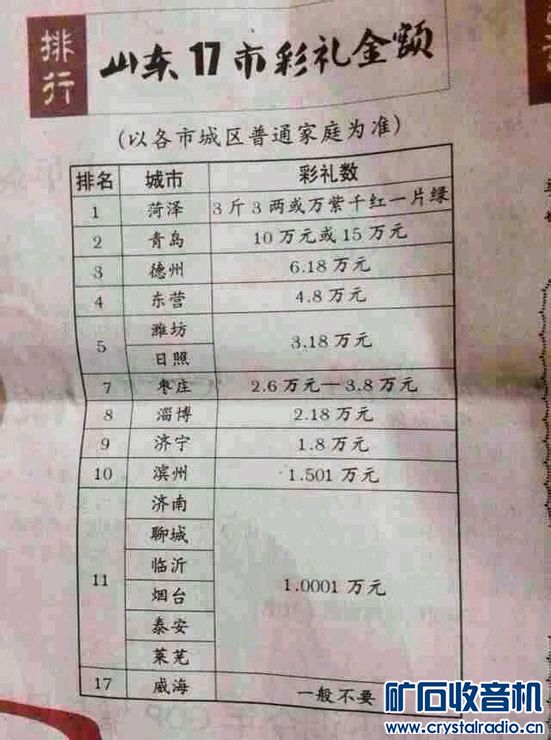 排行
山东17市彩礼金额
(以各市城区普通家庭为准)
排名 城市 彩礼数
1 菏泽 3斤3两或万紫千红一片绿
2 青岛 10万元或15万元
3 德州 6.18万元
4 东营 4.8万元
5 潍坊 日照 3.18万元
7 枣庄 2.6万元—3.8万元
8 淄博 2.18万元
9 济宁 1.8万元
10 滨州 1.501万元
11 济南 聊城 临沂 烟台 泰安 莱芜 1.0001万元
17 威海 一般不要
矿石收音机
www.crystalradio.cn